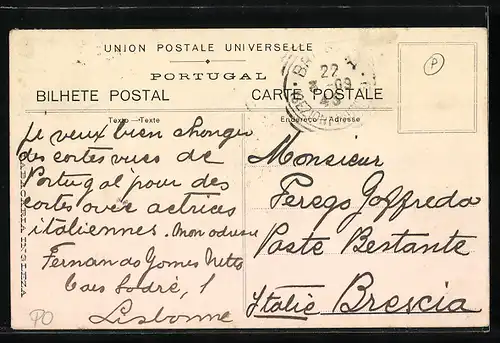 UNION POSTALE UNIVERSELLE
PORTUGAL
BILHETE POSTAL CARTE POSTALE
Texto — Texte
Endereço — Adresse
22
09
je veux bien changer
des cartes vues de
Portugal pour des
cartes avec actrices
italiennes. Mon adresse
Fernandes Gomes Netto
Caes Sodré, 1
Lisbonne
Monsieur
Perego Goffredo
Poste Restante
Italie Brescia
TABACARIA INGLEZA
P
PO